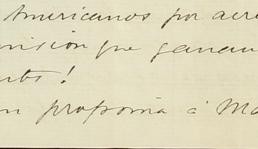 Americanos por acre
misión que ganan
!
proponía á Ma